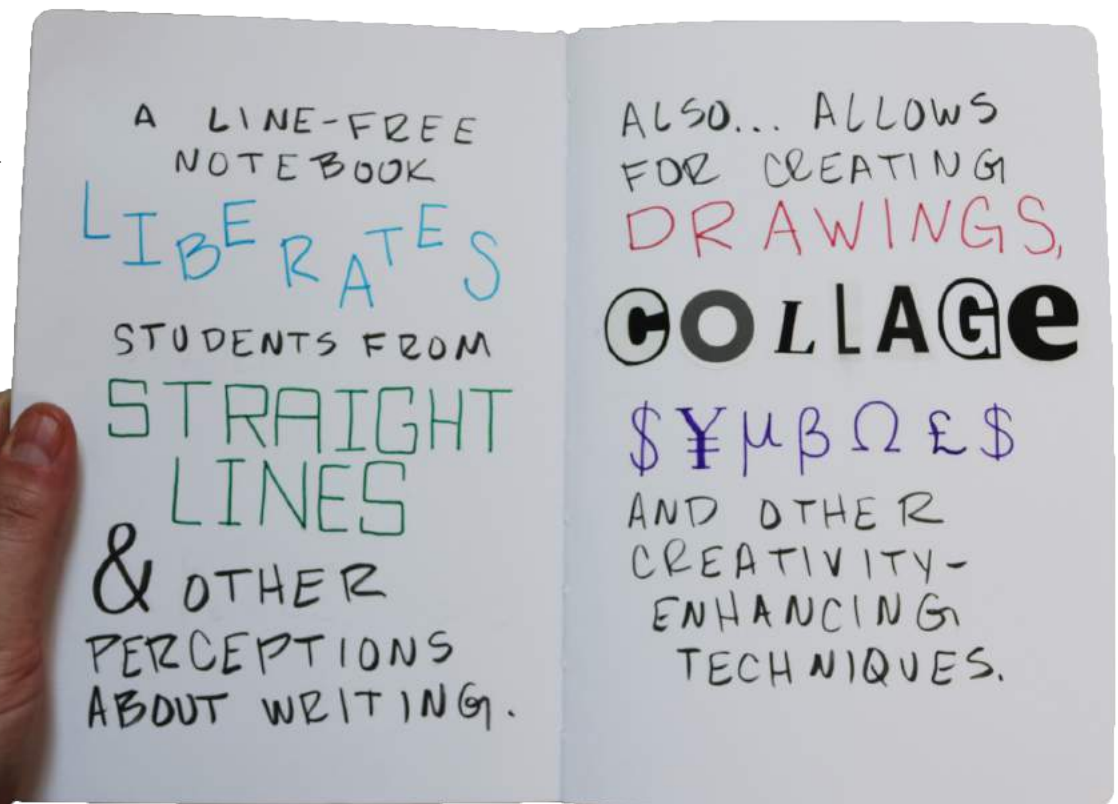 A LINE-FREE
NOTEBOOK
LIBERATES
STUDENTS FROM
STRAIGHT
LINES
& OTHER
PERCEPTIONS
ABOUT WRITING.
ALSO... ALLOWS
FOR CREATING
DRAWINGS,
COLLAGe
$¥µβΩ£$
AND OTHER
CREATIVITY-
ENHANCING
TECHNIQUES.